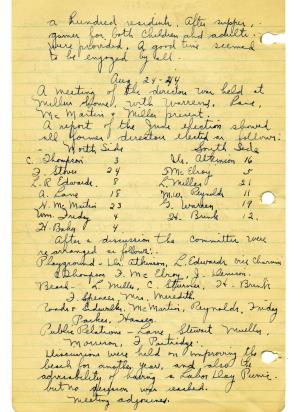 a hundred residents. After supper,
games for both children and adults
were provided. A good time seemed
to be enjoyed by all.
Aug 24-44
A meeting of the directors was held at
Millers home, with Warrens, Lane,
Mc Martin & Miller present.
A report of the June election showed
all former directors elected as follows:
North Side South Side
C. Thompson 3 Wr. Atkinson 16
F. Stover 24 F Mc Elroy 5
L. R Edwards 8 L. Miller 21
A. Lane 15 Reynolds 11
H. Mc Martin 23 F. Warren 19
Wm. Friday 4 H. Brink 12.
H. Baby 4
After a discussion the committee were
re-arranged as follows:
Playground - Atkinson, L. Edwards
Thompson F. Mc Elroy, J.
Beach - L. Miller, C. H. Brink
F. Spencer, Mrs. Meredith.
Roads - Edwards, Mc Martin, Reynolds, Friday
Parker, Hansen
Public Relations - Lane, Stewart Mueller,
Morrison, F. Partridge.
Discussions were held on improving the
beach for another year, and also the
advisability of having a Labor Day Picnic
but no decision was reached.
Meeting adjourned.